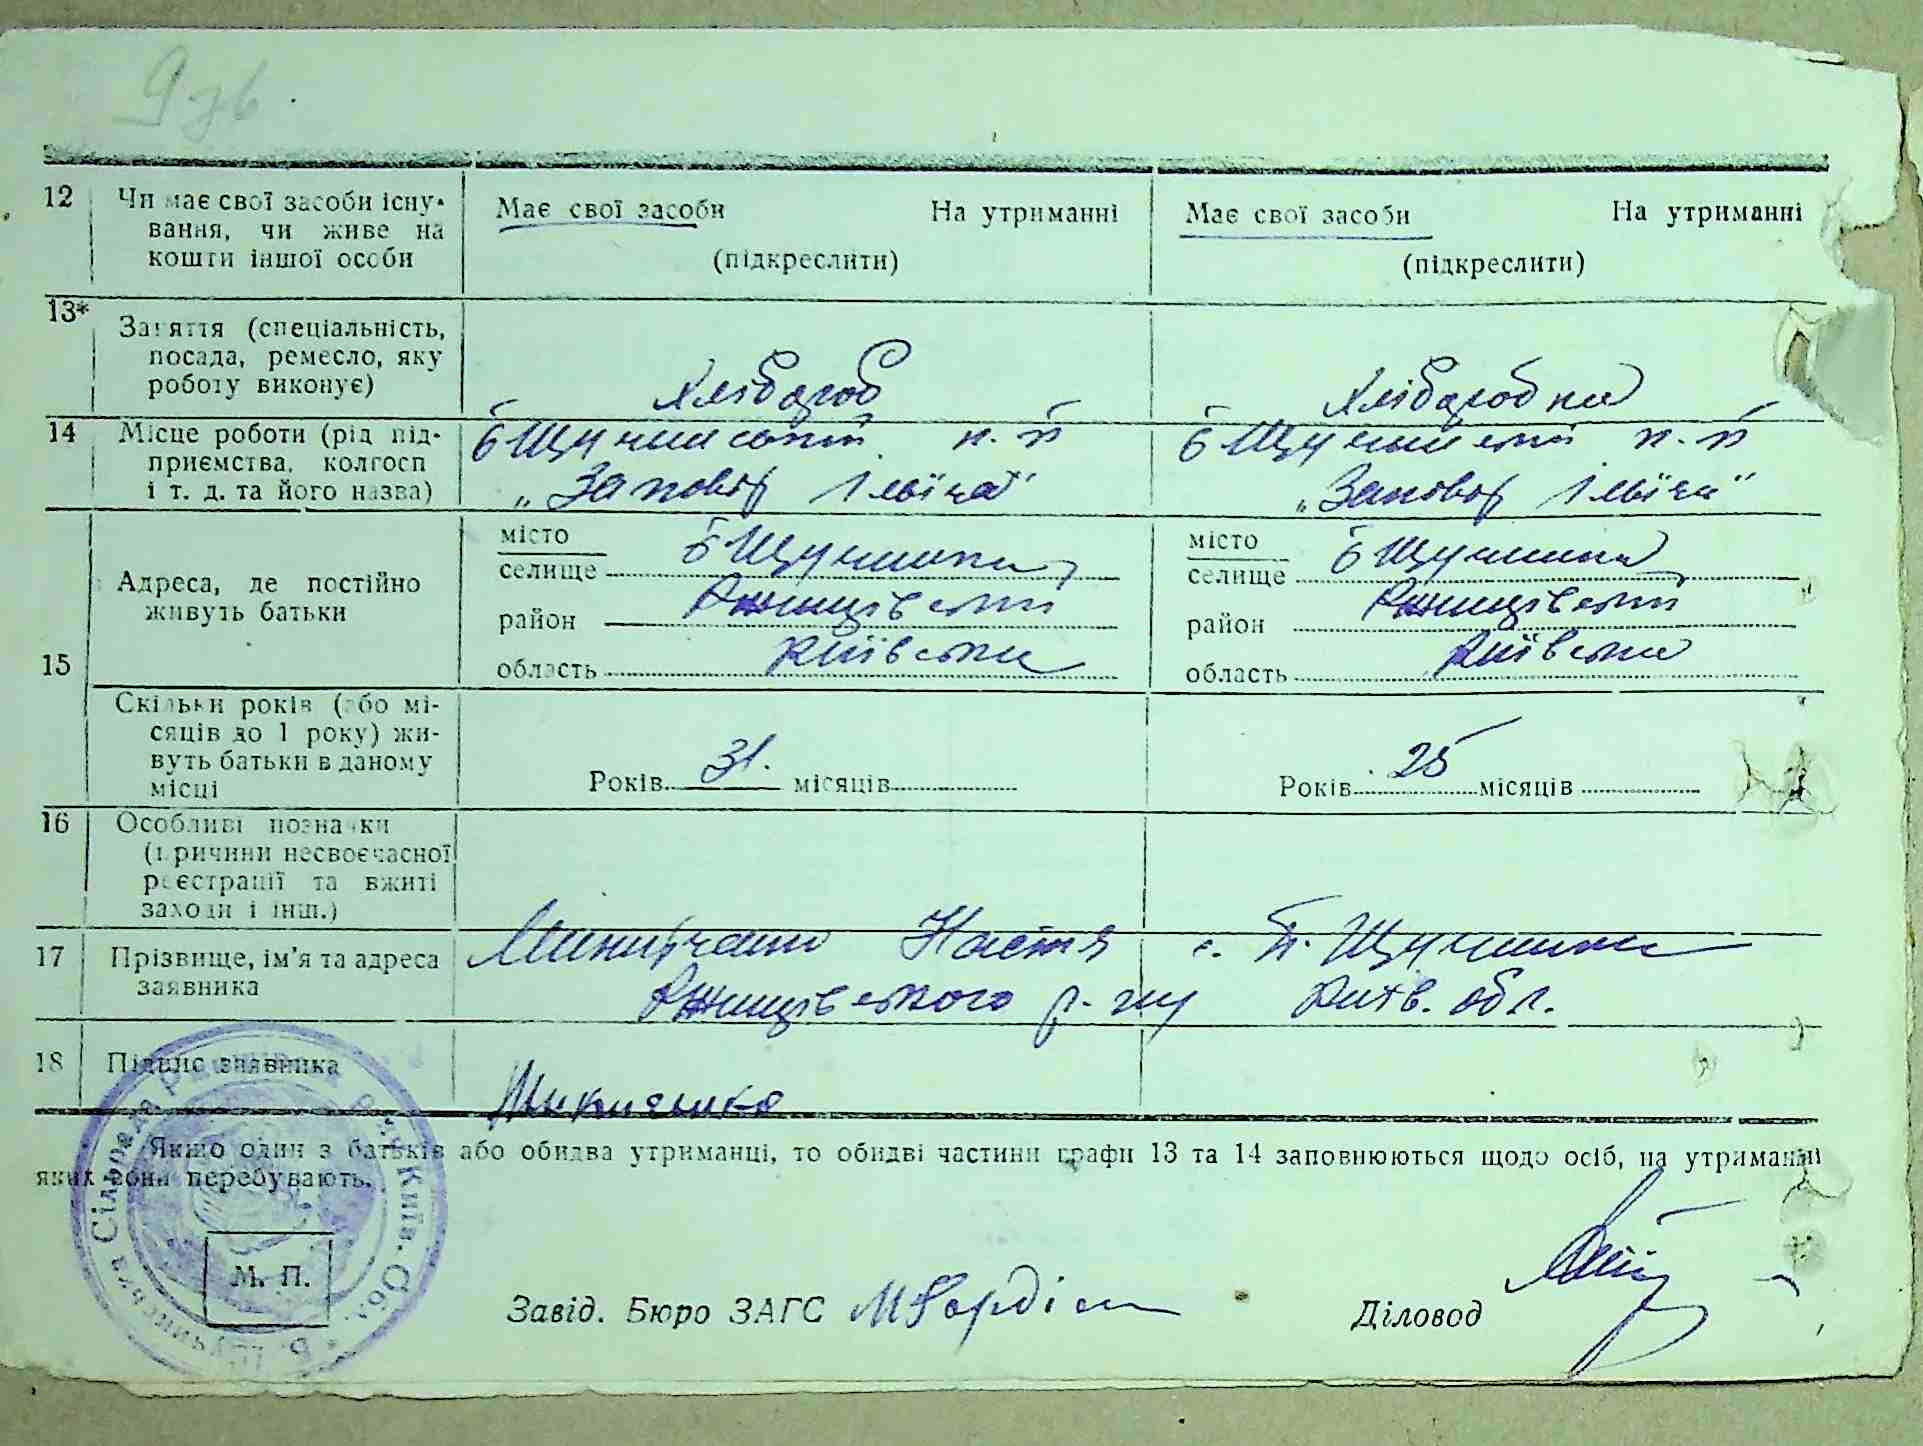 12 Чи має свої засоби існу-
вання, чи живе на
кошти іншої особи
Має свої засоби На утриманні
(підкреслити)
Має свої засоби На утриманні
(підкреслити)
13* Заняття (спеціальність,
посада, ремесло, яку
роботу виконує)
Хлібороб
Хліборобка
14 Місце роботи (рід під-
приємства, колгосп
і т. д. та його назва)
Б Щучинський к. п
„Заповіт Ілліча"
Б Щучинський к. п
„Заповіт Ілліча"
15 Адреса, де постійно
живуть батьки
місто
селище Б Щучинка
район Ржищівський
область Київська
місто
селище Б Щучинка
район Ржищівський
область Київська
Скільки років (або мі-
сяців до 1 року) жи-
вуть батьки в даному
місці
Років 31. місяців
Років 25 місяців
16 Особливі позначки
(причини несвоєчасної
реєстрації та вжиті
заходи і інш.)
17 Прізвище, ім'я та адреса
заявника
Настя с. Б. Щучинка
Ржищівського р-ну Київ. обл.
18 Підпис заявника
Якщо один з батьків або обидва утриманці, то обидві частини графи 13 та 14 заповнюються щодо осіб, на утриманні
яких вони перебувають.
М. П.
Завід. Бюро ЗАГС
Діловод